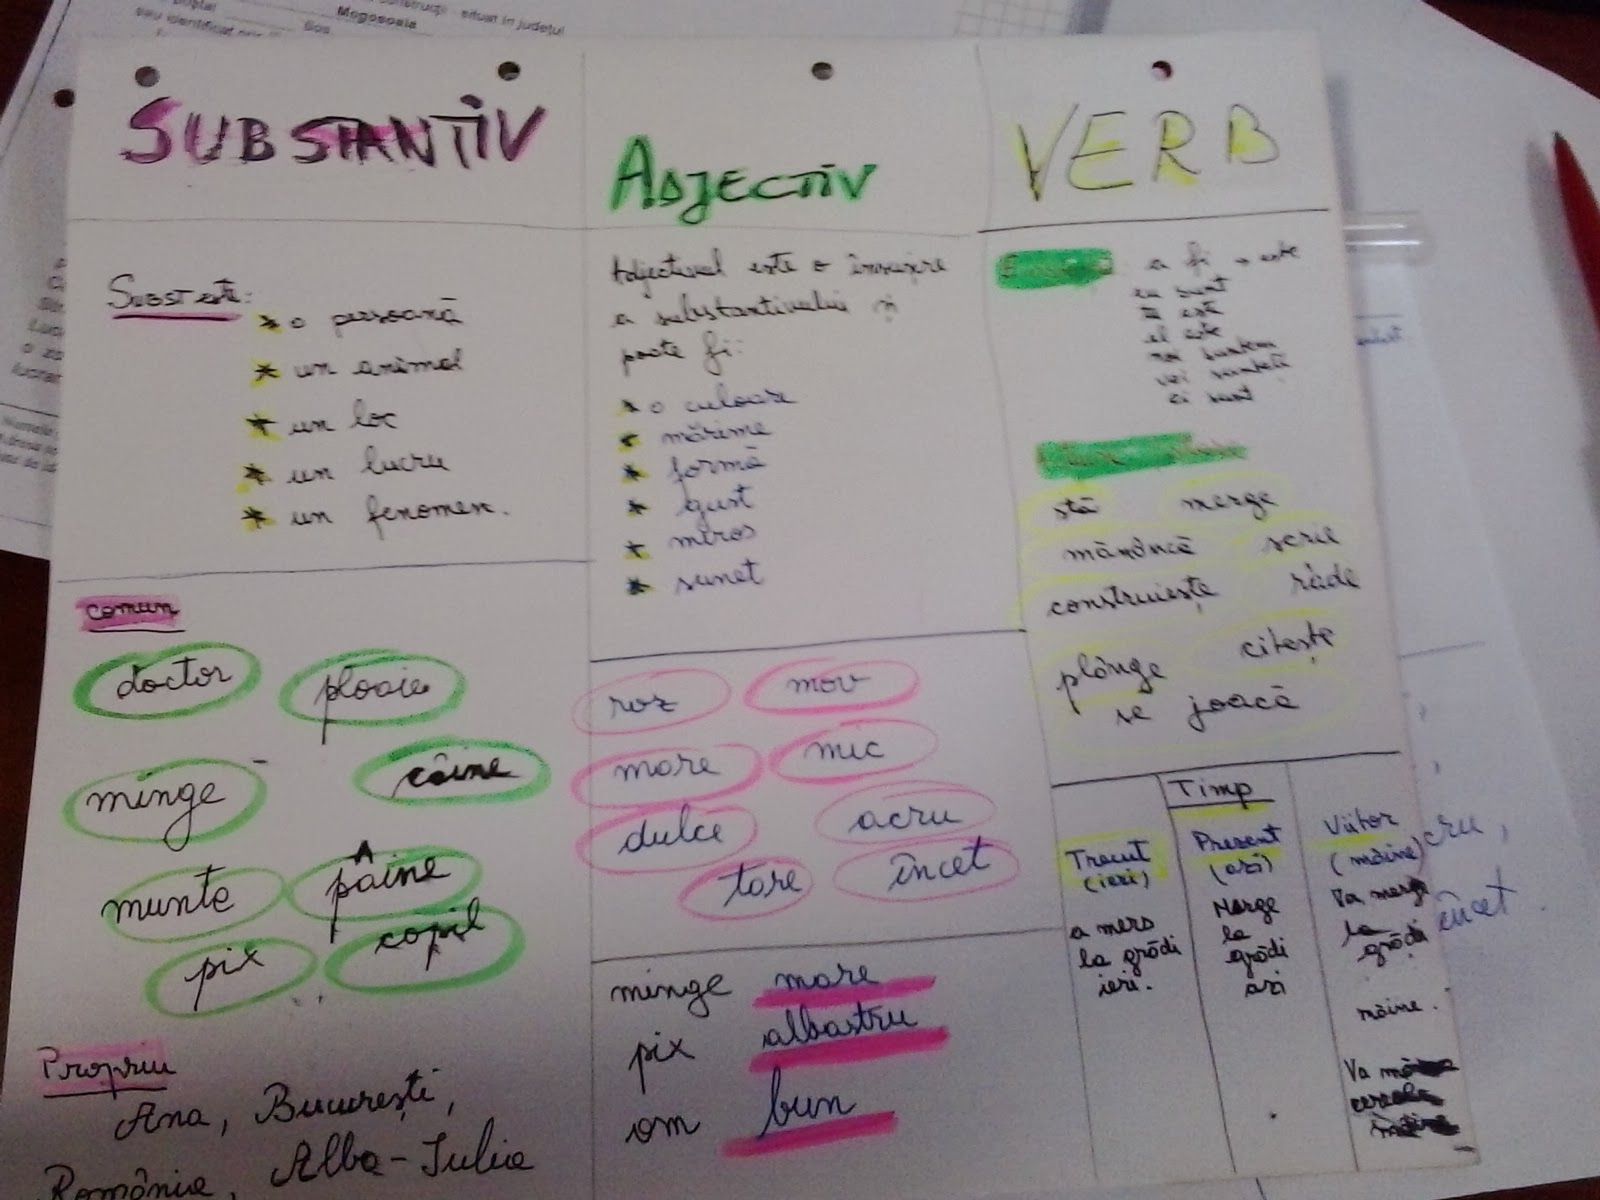 situat în județul
Mogosoaia
SUBSTANTIV
SUBST este:
* o persoană
* un animal
* un loc
* un lucru
* un fenomen.
comun
doctor ploaie
minge câine
munte pâine
pix copil
Propriu
Ana, București,
România, Alba-Iulia
ADJECTIV
Adjectivul este o însușire
a substantivului și
poate fi:
* o culoare
* mărime
* formă
* gust
* miros
* sunet
roz mov
mare mic
dulce acru
tare încet
minge mare
pix albastru
om bun
VERB
a fi → este
eu sunt
tu este
el este
noi suntem
voi sunteți
ei sunt
stă merge
mănâncă scrie
construiește râde
plânge citește
se joacă
Timp
Trecut
(ieri)
a mers
la grădi
ieri.
Prezent
(azi)
Merge
la
grădi
azi
Viitor
(mâine)
Va merge
la
grădi
mâine.
Va
cru,
încet.